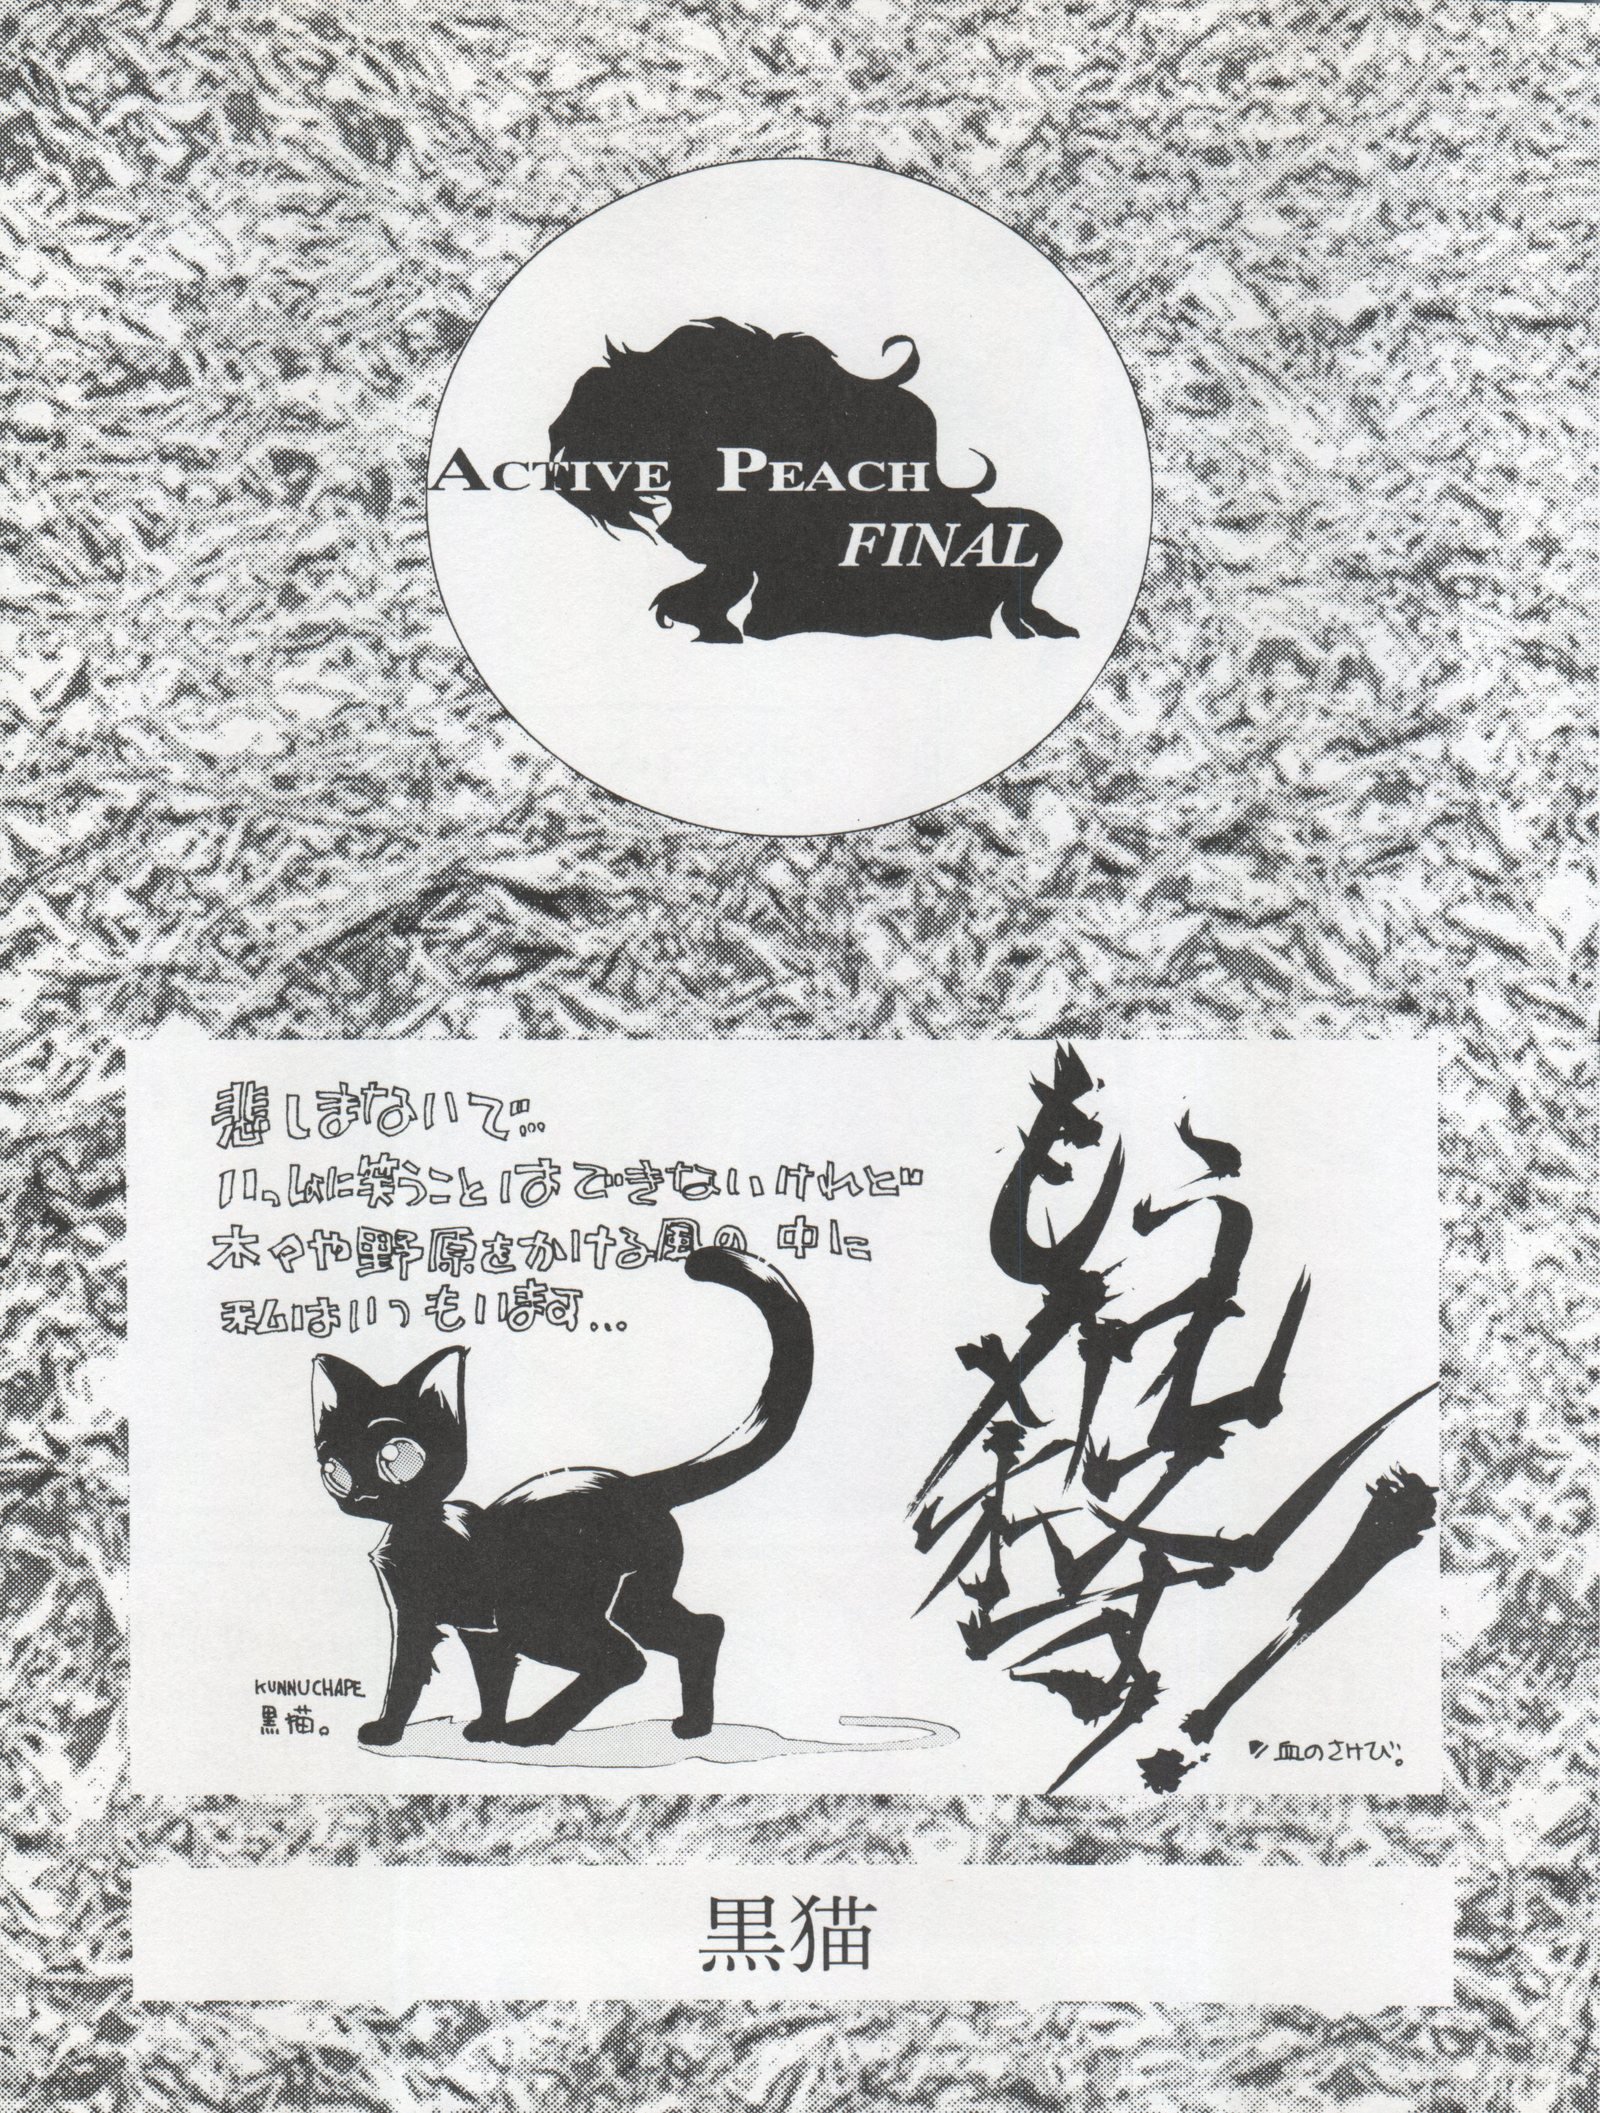 ACTIVE PEACH
FINAL
悲しまないで…
いっしょに笑うことはできないけれど
木々や野原をかける風の中に
私はいつもいます…
もう
KUNNUCHAPE
黒猫。
血のさけび。
黒猫